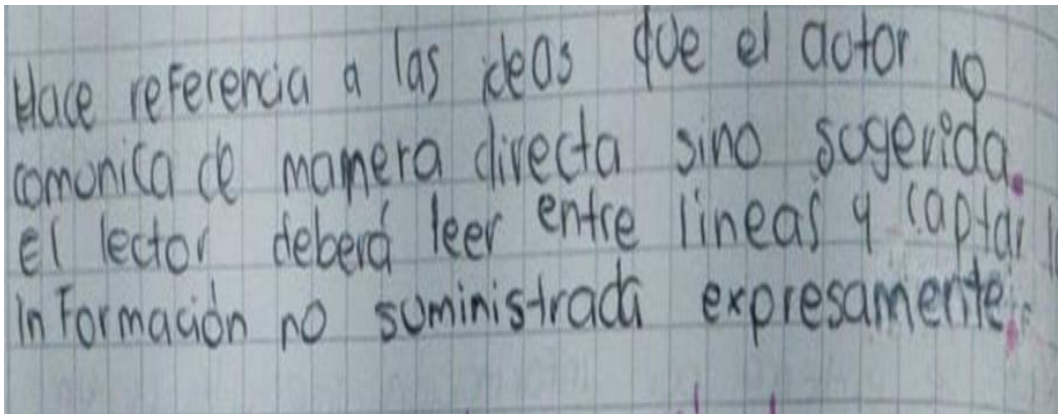 Hace referencia a las ideas que el autor no
comunica de manera directa sino sugerida.
El lector deberá leer entre lineas y captar
información no suministrada expresamente.